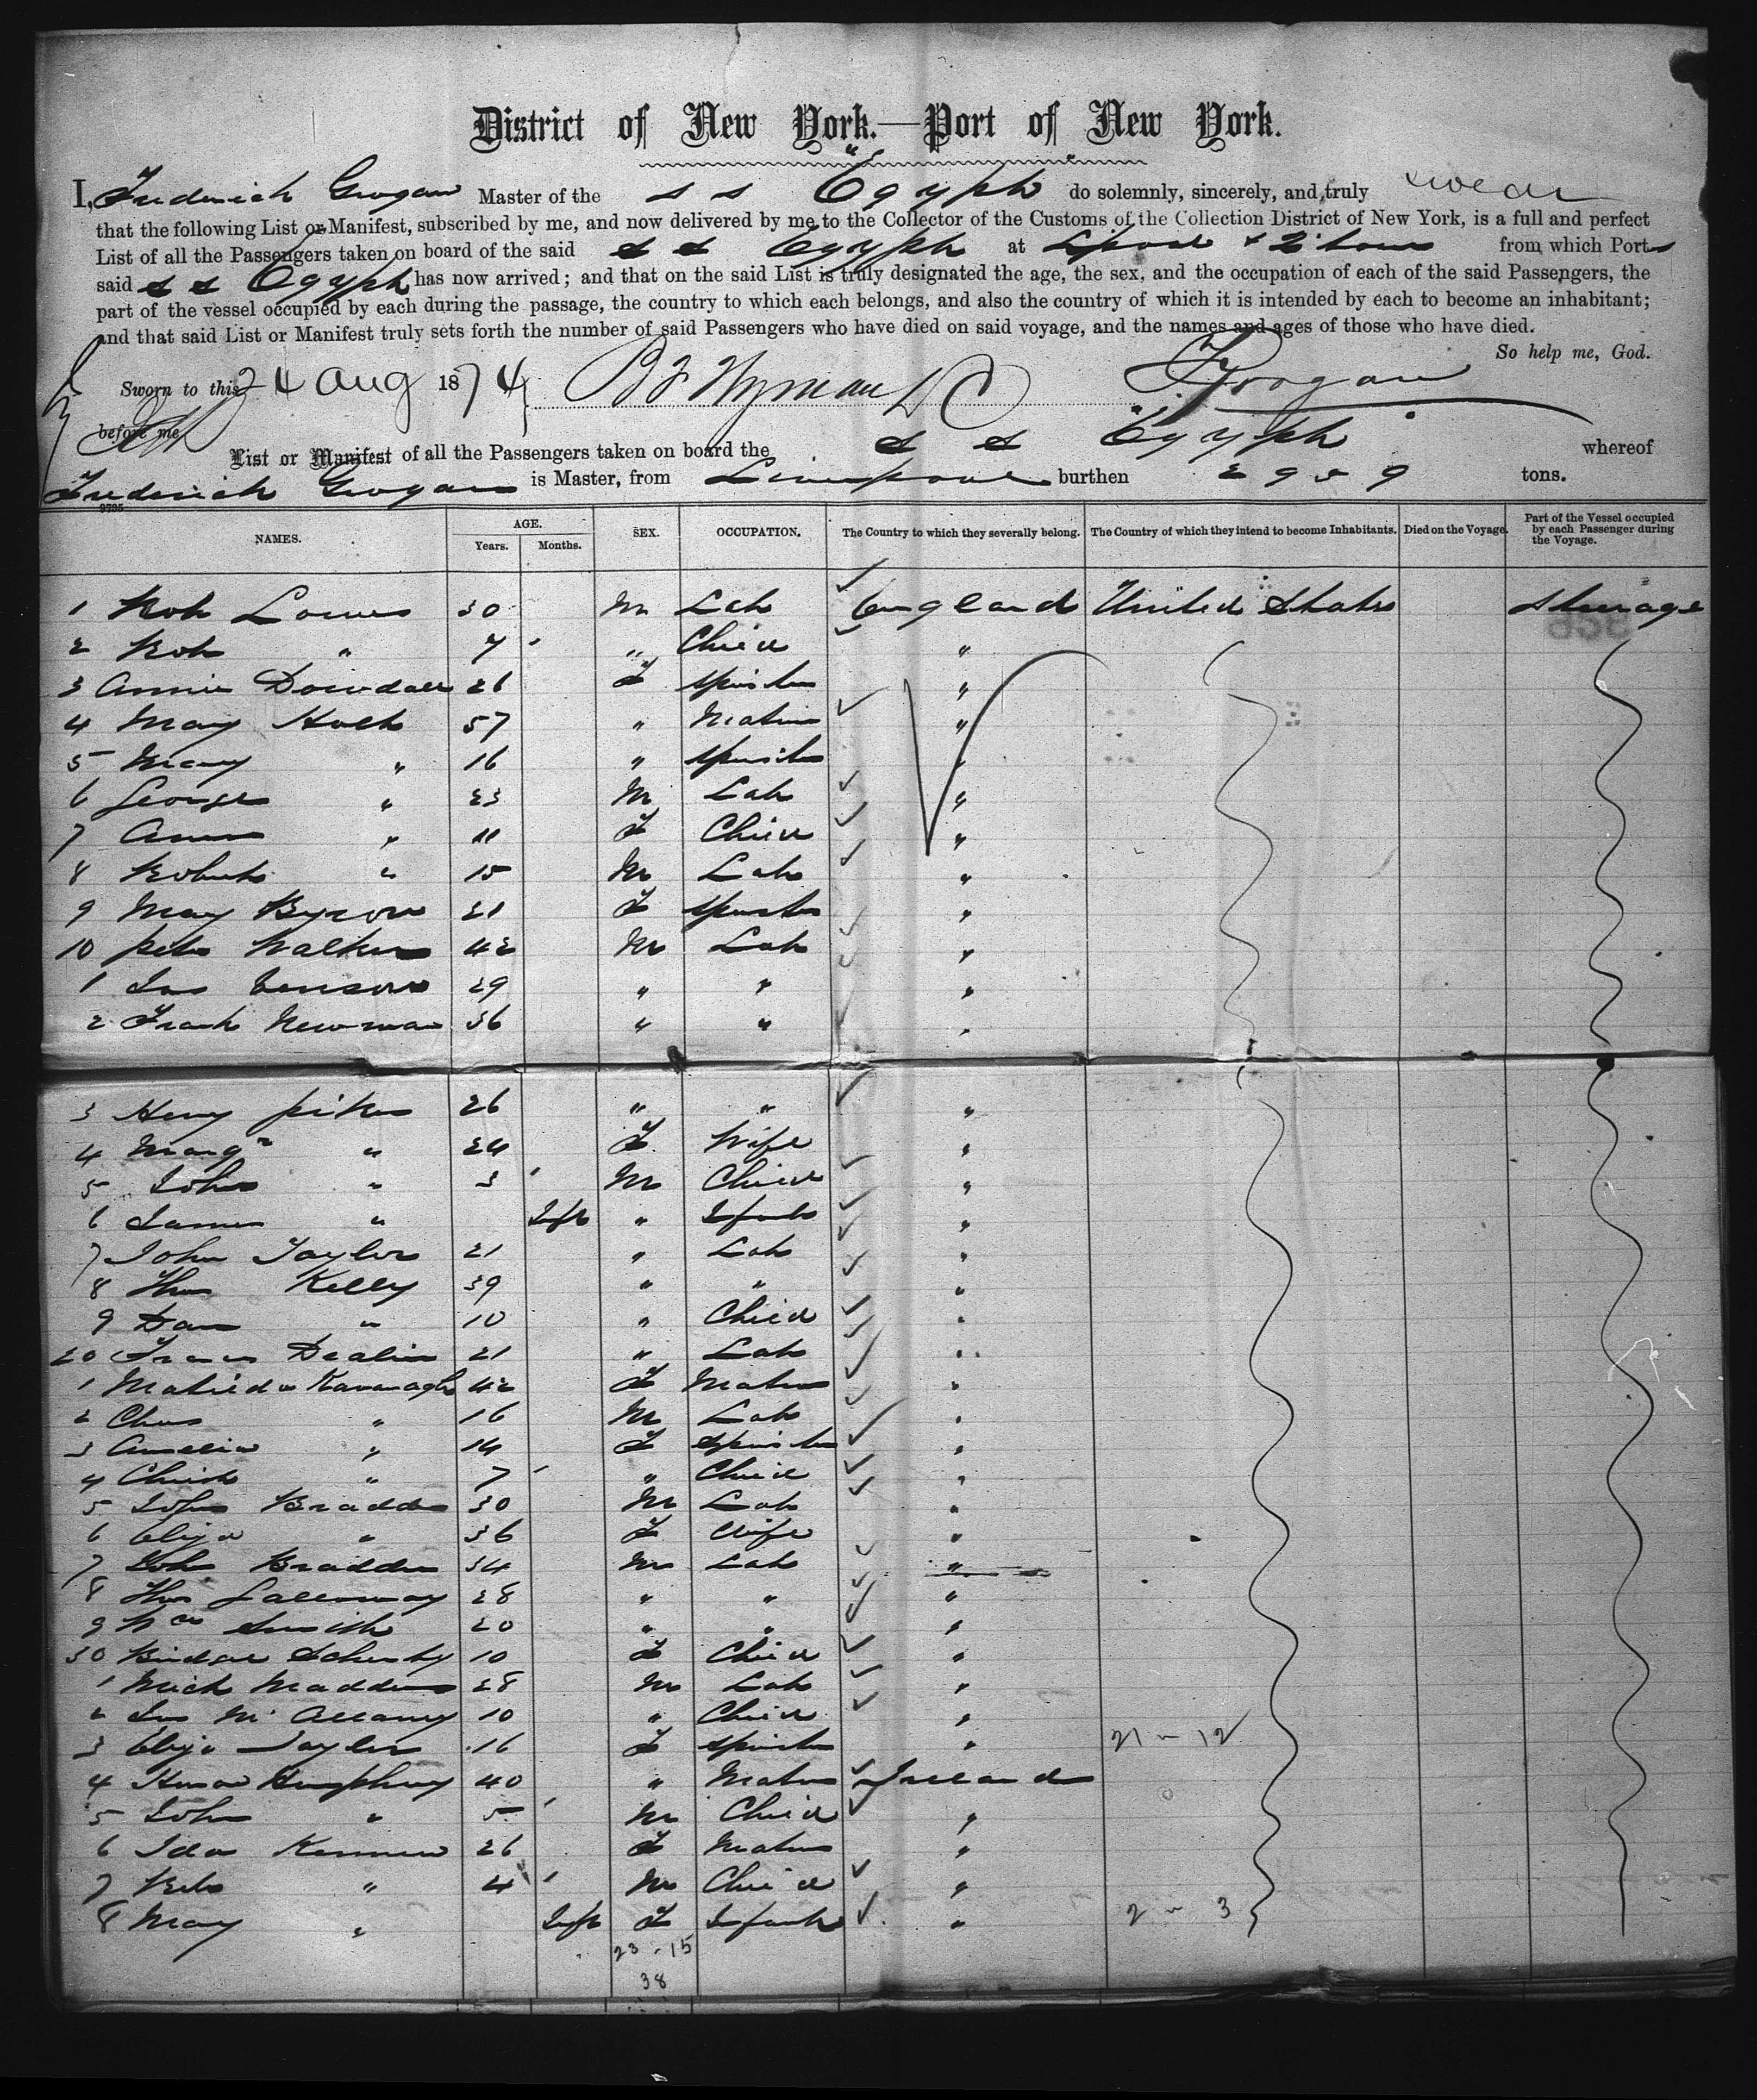 District of New York.—Port of New York.
I, Frederick Grogan Master of the s s Egypt do solemnly, sincerely, and truly swear
that the following List or Manifest, subscribed by me, and now delivered by me to the Collector of the Customs of the Collection District of New York, is a full and perfect
List of all the Passengers taken on board of the said s s Egypt at Lpool & from which Ports
said s s Egypt has now arrived; and that on the said List is truly designated the age, the sex, and the occupation of each of the said Passengers, the
part of the vessel occupied by each during the passage, the country to which each belongs, and also the country of which it is intended by each to become an inhabitant;
and that said List or Manifest truly sets forth the number of said Passengers who have died on said voyage, and the names and ages of those who have died.
So help me, God.
Sworn to this 24 Aug 1874 B F Wyman DC F Grogan
before me
List or Manifest of all the Passengers taken on board the s s Egypt whereof
Frederick Grogan is Master, from Liverpool burthen 2959 tons.
9795
NAMES. AGE. Years. Months. SEX. OCCUPATION. The Country to which they severally belong. The Country of which they intend to become Inhabitants. Died on the Voyage. Part of the Vessel occupied by each Passenger during the Voyage.
1 Rob Lowes 30 M Lab England United States Steerage
2 Rob " 7 " Child "
3 Annie Dowdall 26 F Spinster "
4 Mary Holt 57 " Matron "
5 Mary " 16 " Spinster "
6 George " 23 M Lab "
7 " 11 F Child "
8 Robert " 15 M Lab "
9 Mary Byron 21 F Spinster "
10 Peter Walker 42 M Lab "
1 Jas Benson 29 " " "
2 Frank Newman 36 " " "
3 Henry 26 " " "
4 Margt " 24 F Wife "
5 John " 3 M Child "
6 James " Inft " Infant "
7 John Taylor 21 " Lab "
8 Thos Kelly 39 " " "
9 Dan " 10 " Child "
20 Francis 21 " Lab "
1 Matilda Kavanagh 42 F Matron "
2 Chas " 16 M Lab "
3 Amelia " 14 F Spinster "
4 " 7 " Child "
5 John 30 M Lab "
6 Eliza " 36 F Wife "
7 John 34 M Lab "
8 Thos Galloway 28 " " "
9 Wm Smith 20 " " "
30 10 F Child "
1 Mich Madden 28 M Lab "
2 Jas 10 " Child "
3 Eliza Taylor 16 F Spinster " 21 - 12
4 Humphrey 40 " Matron Ireland
5 John " 5 M Child "
6 Ida 26 F Matron "
7 " 4 M Child "
8 Mary " Inft F Infant " 2 - 3
23 - 15
38